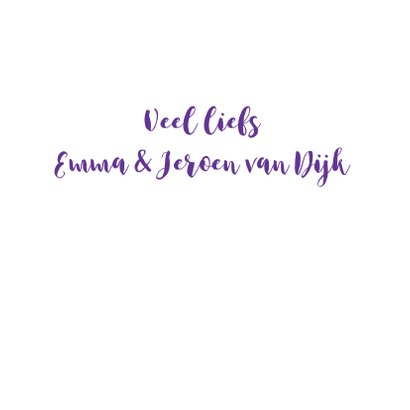 Veel liefs
Emma & Jeroen van Dijk